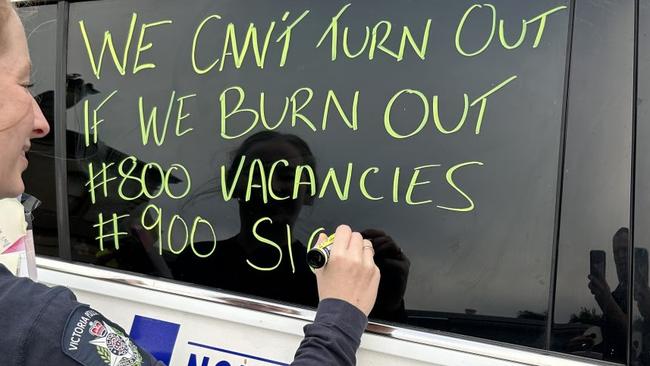 WE CAN'T TURN OUT
IF WE BURN OUT
#800 VACANCIES
#900 SIC
VICTORIA PO
NO